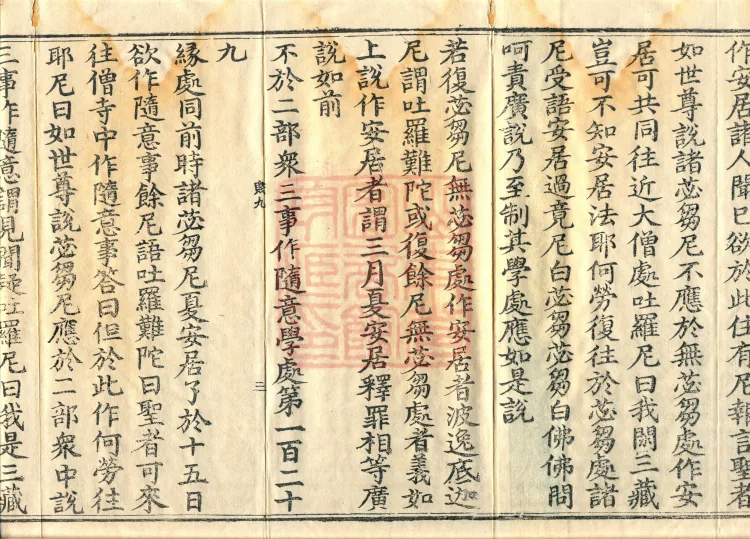 作安居諸人聞已欲於此住有尼報言聖者
如世尊說諸苾芻尼不應於無苾芻處作安
居可共同往近大僧處吐羅尼曰我閑三藏
豈可不知安居法耶何勞復往於苾芻處諸
尼受語安居過竟尼白苾芻苾芻白佛佛問
呵責廣說乃至制其學處應如是說
若復苾芻尼無苾芻處作安居者波逸底迦
尼謂吐羅難陀或復餘尼無苾芻處者義如
上說作安居者謂三月夏安居釋罪相等廣
說如前
不於二部衆三事作隨意學處第一百二十
九
緣處同前時諸苾芻尼夏安居了於十五日
欲作隨意事餘尼語吐羅難陀曰聖者可來
往僧寺中作隨意事答曰但於此作何勞往
耶尼曰如世尊說苾芻尼應於二部衆中說
三事作隨意謂見聞疑吐羅尼曰我是三藏